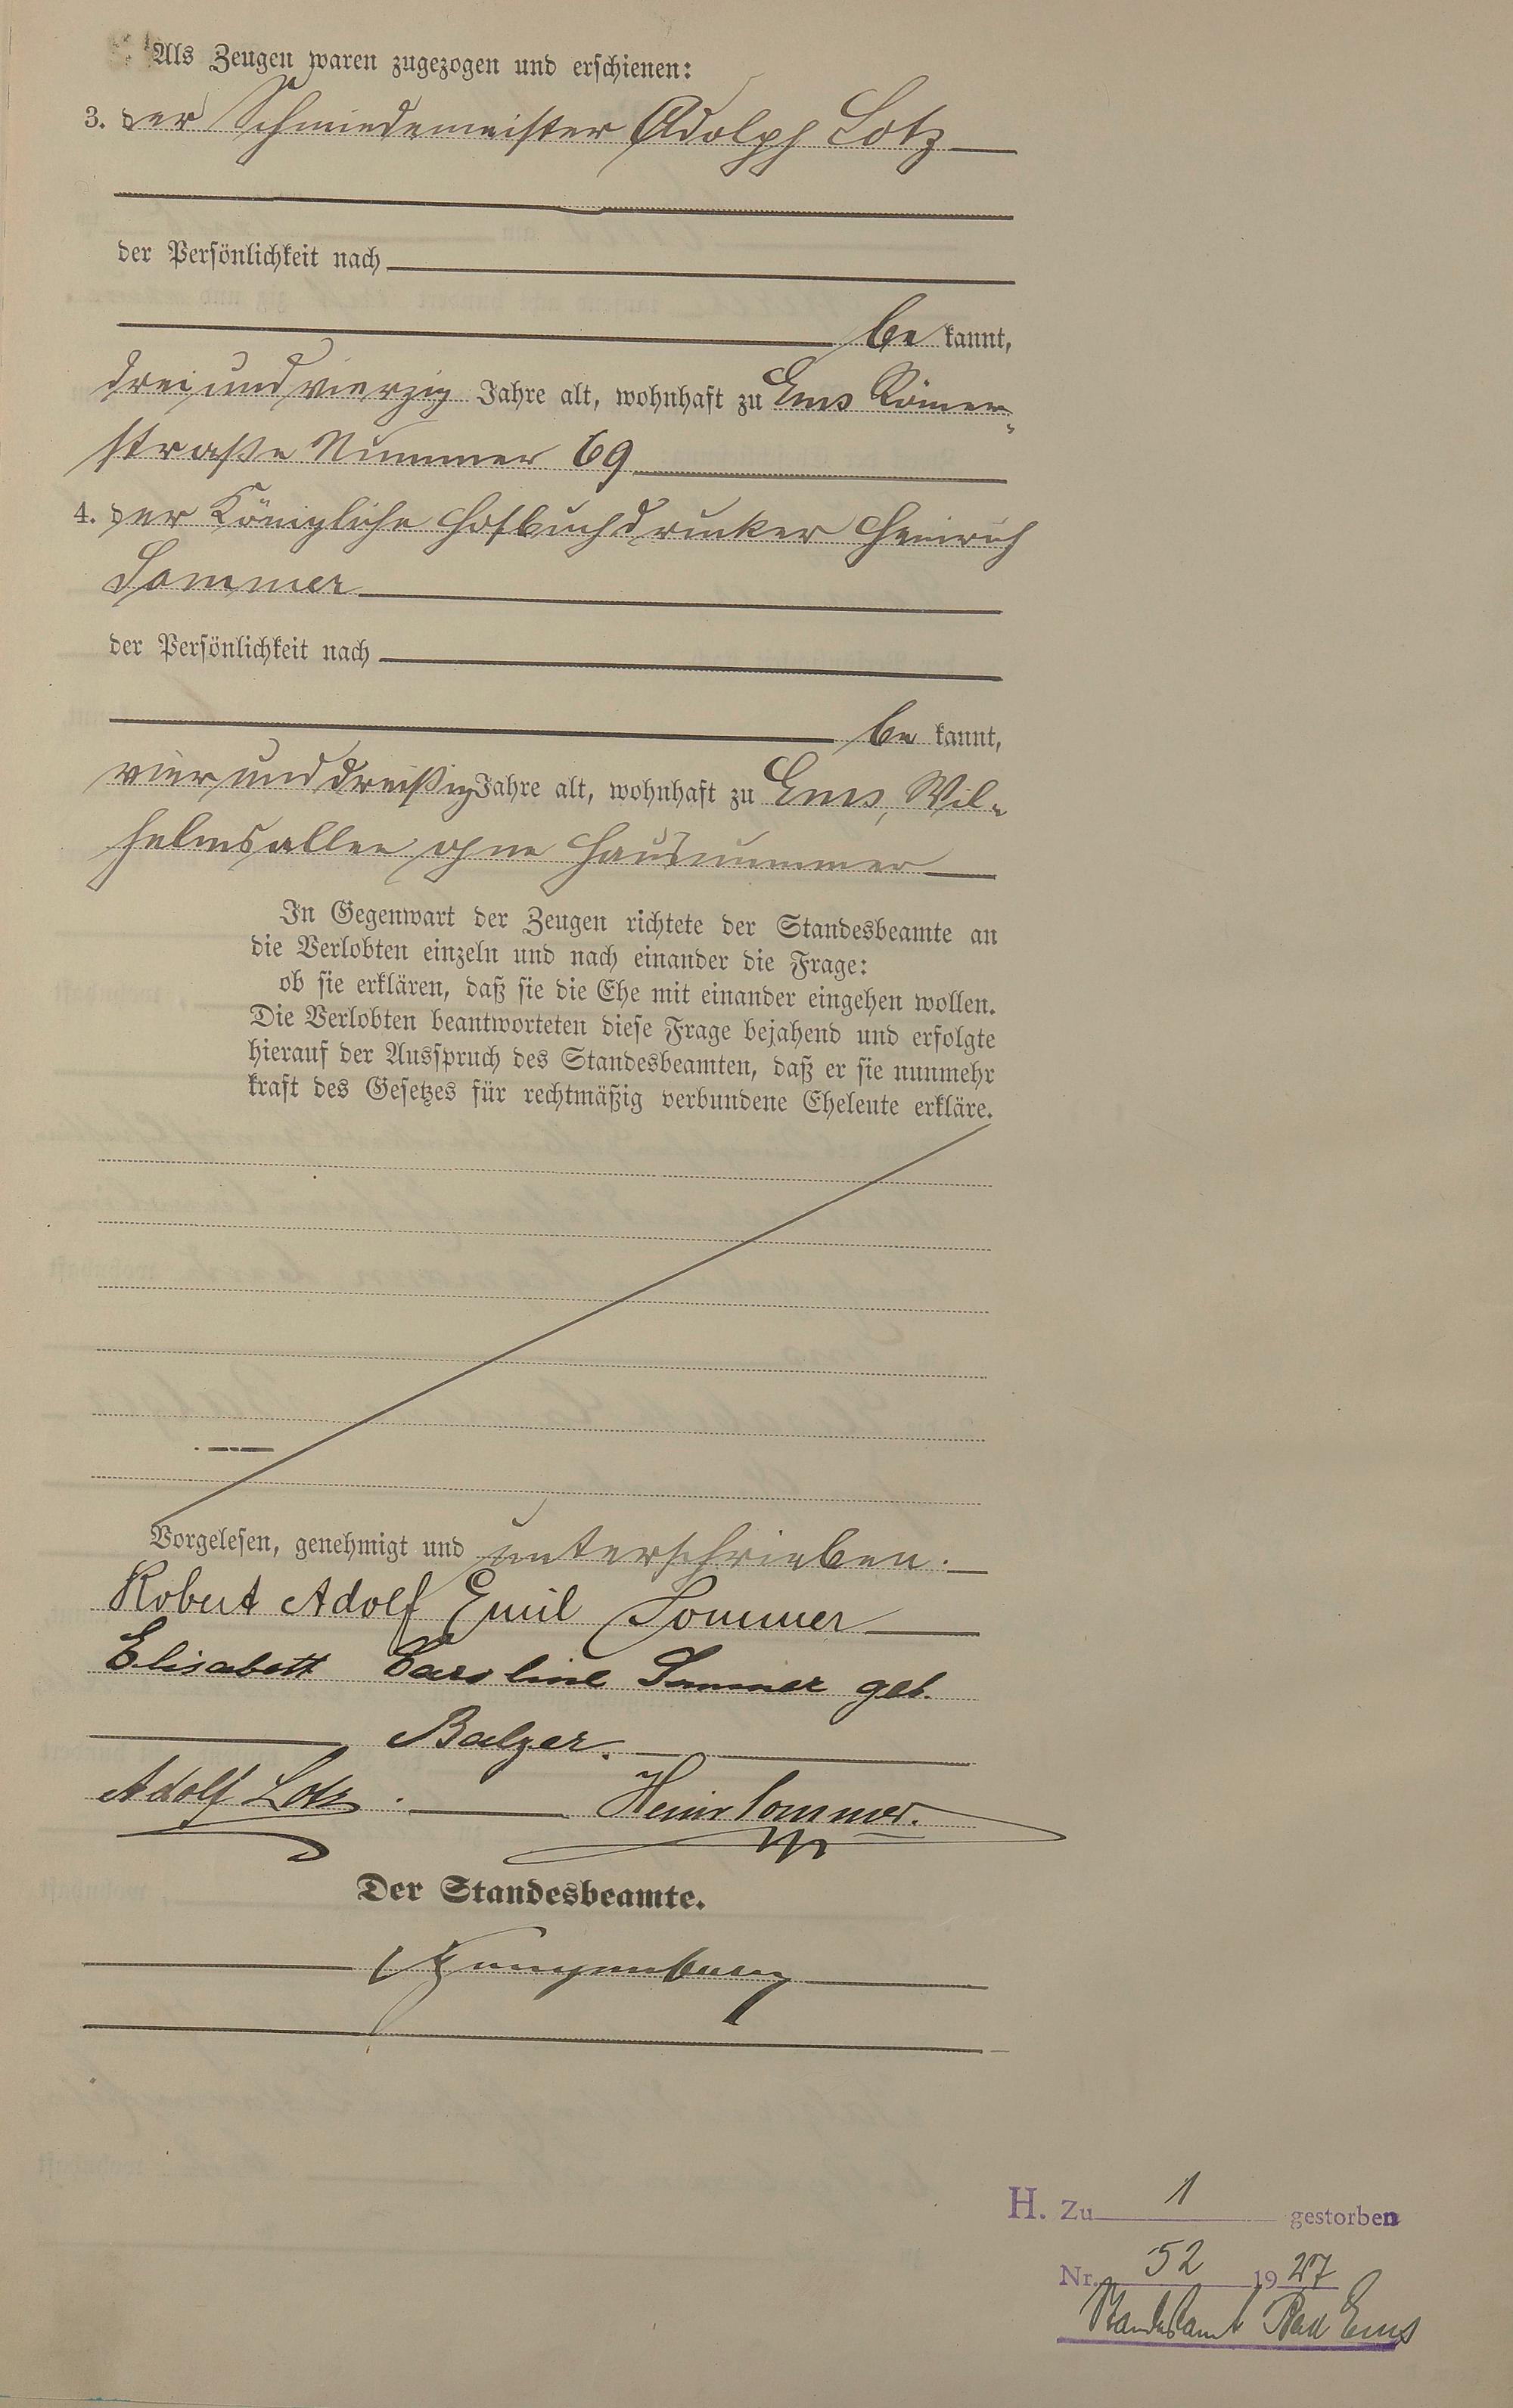 Als Zeugen waren zugezogen und erschienen:
3. der Schmiedemeister Adolph Lotz
der Persönlichkeit nach
be kannt,
drei und vierzig Jahre alt, wohnhaft zu Ems Römer-
straße Nummer 69
4. der Königliche Hofbuchdrucker Heinrich
Sommer
der Persönlichkeit nach
be kannt,
vier und dreißig Jahre alt, wohnhaft zu Ems, Wil-
helmsallee ohne Hausnummer
In Gegenwart der Zeugen richtete der Standesbeamte an
die Verlobten einzeln und nach einander die Frage:
ob sie erklären, daß sie die Ehe mit einander eingehen wollen.
Die Verlobten beantworteten diese Frage bejahend und erfolgte
hierauf der Ausspruch des Standesbeamten, daß er sie nunmehr
kraft des Gesetzes für rechtmäßig verbundene Eheleute erkläre.
Vorgelesen, genehmigt und unterschrieben.
Robert Adolf Emil Sommer
Elisabeth Caroline Sommer geb.
Balzer.
Adolf Lotz. Heinr Sommer.
Der Standesbeamte.
H. Zu 1 gestorben
Nr. 52 1927
Standesamt Bad Ems